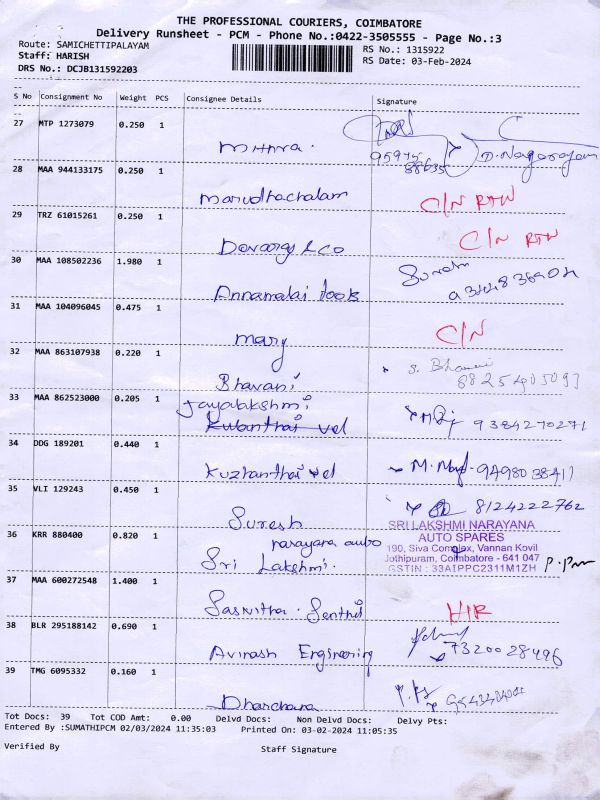 THE PROFESSIONAL COURIERS, COIMBATORE
Delivery Runsheet - PCM - Phone No.:0422-3505555 - Page No.:3
Route: SAMICHETTIPALAYAM
RS No.: 1315922
Staff: HARISH
RS Date: 03-Feb-2024
DRS No.: DCJB131592203
S No Consignment No Weight PCS Consignee Details Signature
27 MTP 1273079 0.250 1
D. Nagarajan
28 MAA 944133175 0.250 1
Marudhachalam C/N RTN
29 TRZ 61015261 0.250 1
C/N RTN
30 MAA 108502236 1.980 1
Annamalai tools
31 MAA 104096045 0.475 1
mary C/N
32 MAA 863107938 0.220 1
Bhavani
33 MAA 862523000 0.205 1
Jayalakshmi
Kulanthai vel 9384270271
34 DDG 189201 0.440 1
Kuzhanthai vel 9498038411
35 VLI 129243 0.450 1
Suresh 8124222762
36 KRR 880400 0.820 1
narayana auto
Sri Lakshmi.
SRI LAKSHMI NARAYANA
AUTO SPARES
190, Siva Complex, Vannan Kovil
Jothipuram, Coimbatore - 641 047
GSTIN : 33AIPPC2311M1ZH
37 MAA 600272548 1.400 1
Sasvitha. Senthil
38 BLR 295188142 0.690 1
Avinash Engineering 7320028496
39 TMG 6095332 0.160 1
Tot Docs: 39 Tot COD Amt: 0.00 Delvd Docs: Non Delvd Docs: Delvy Pts:
Entered By :SUMATHIPCM 02/03/2024 11:35:03 Printed On: 03-02-2024 11:05:35
Verified By Staff Signature